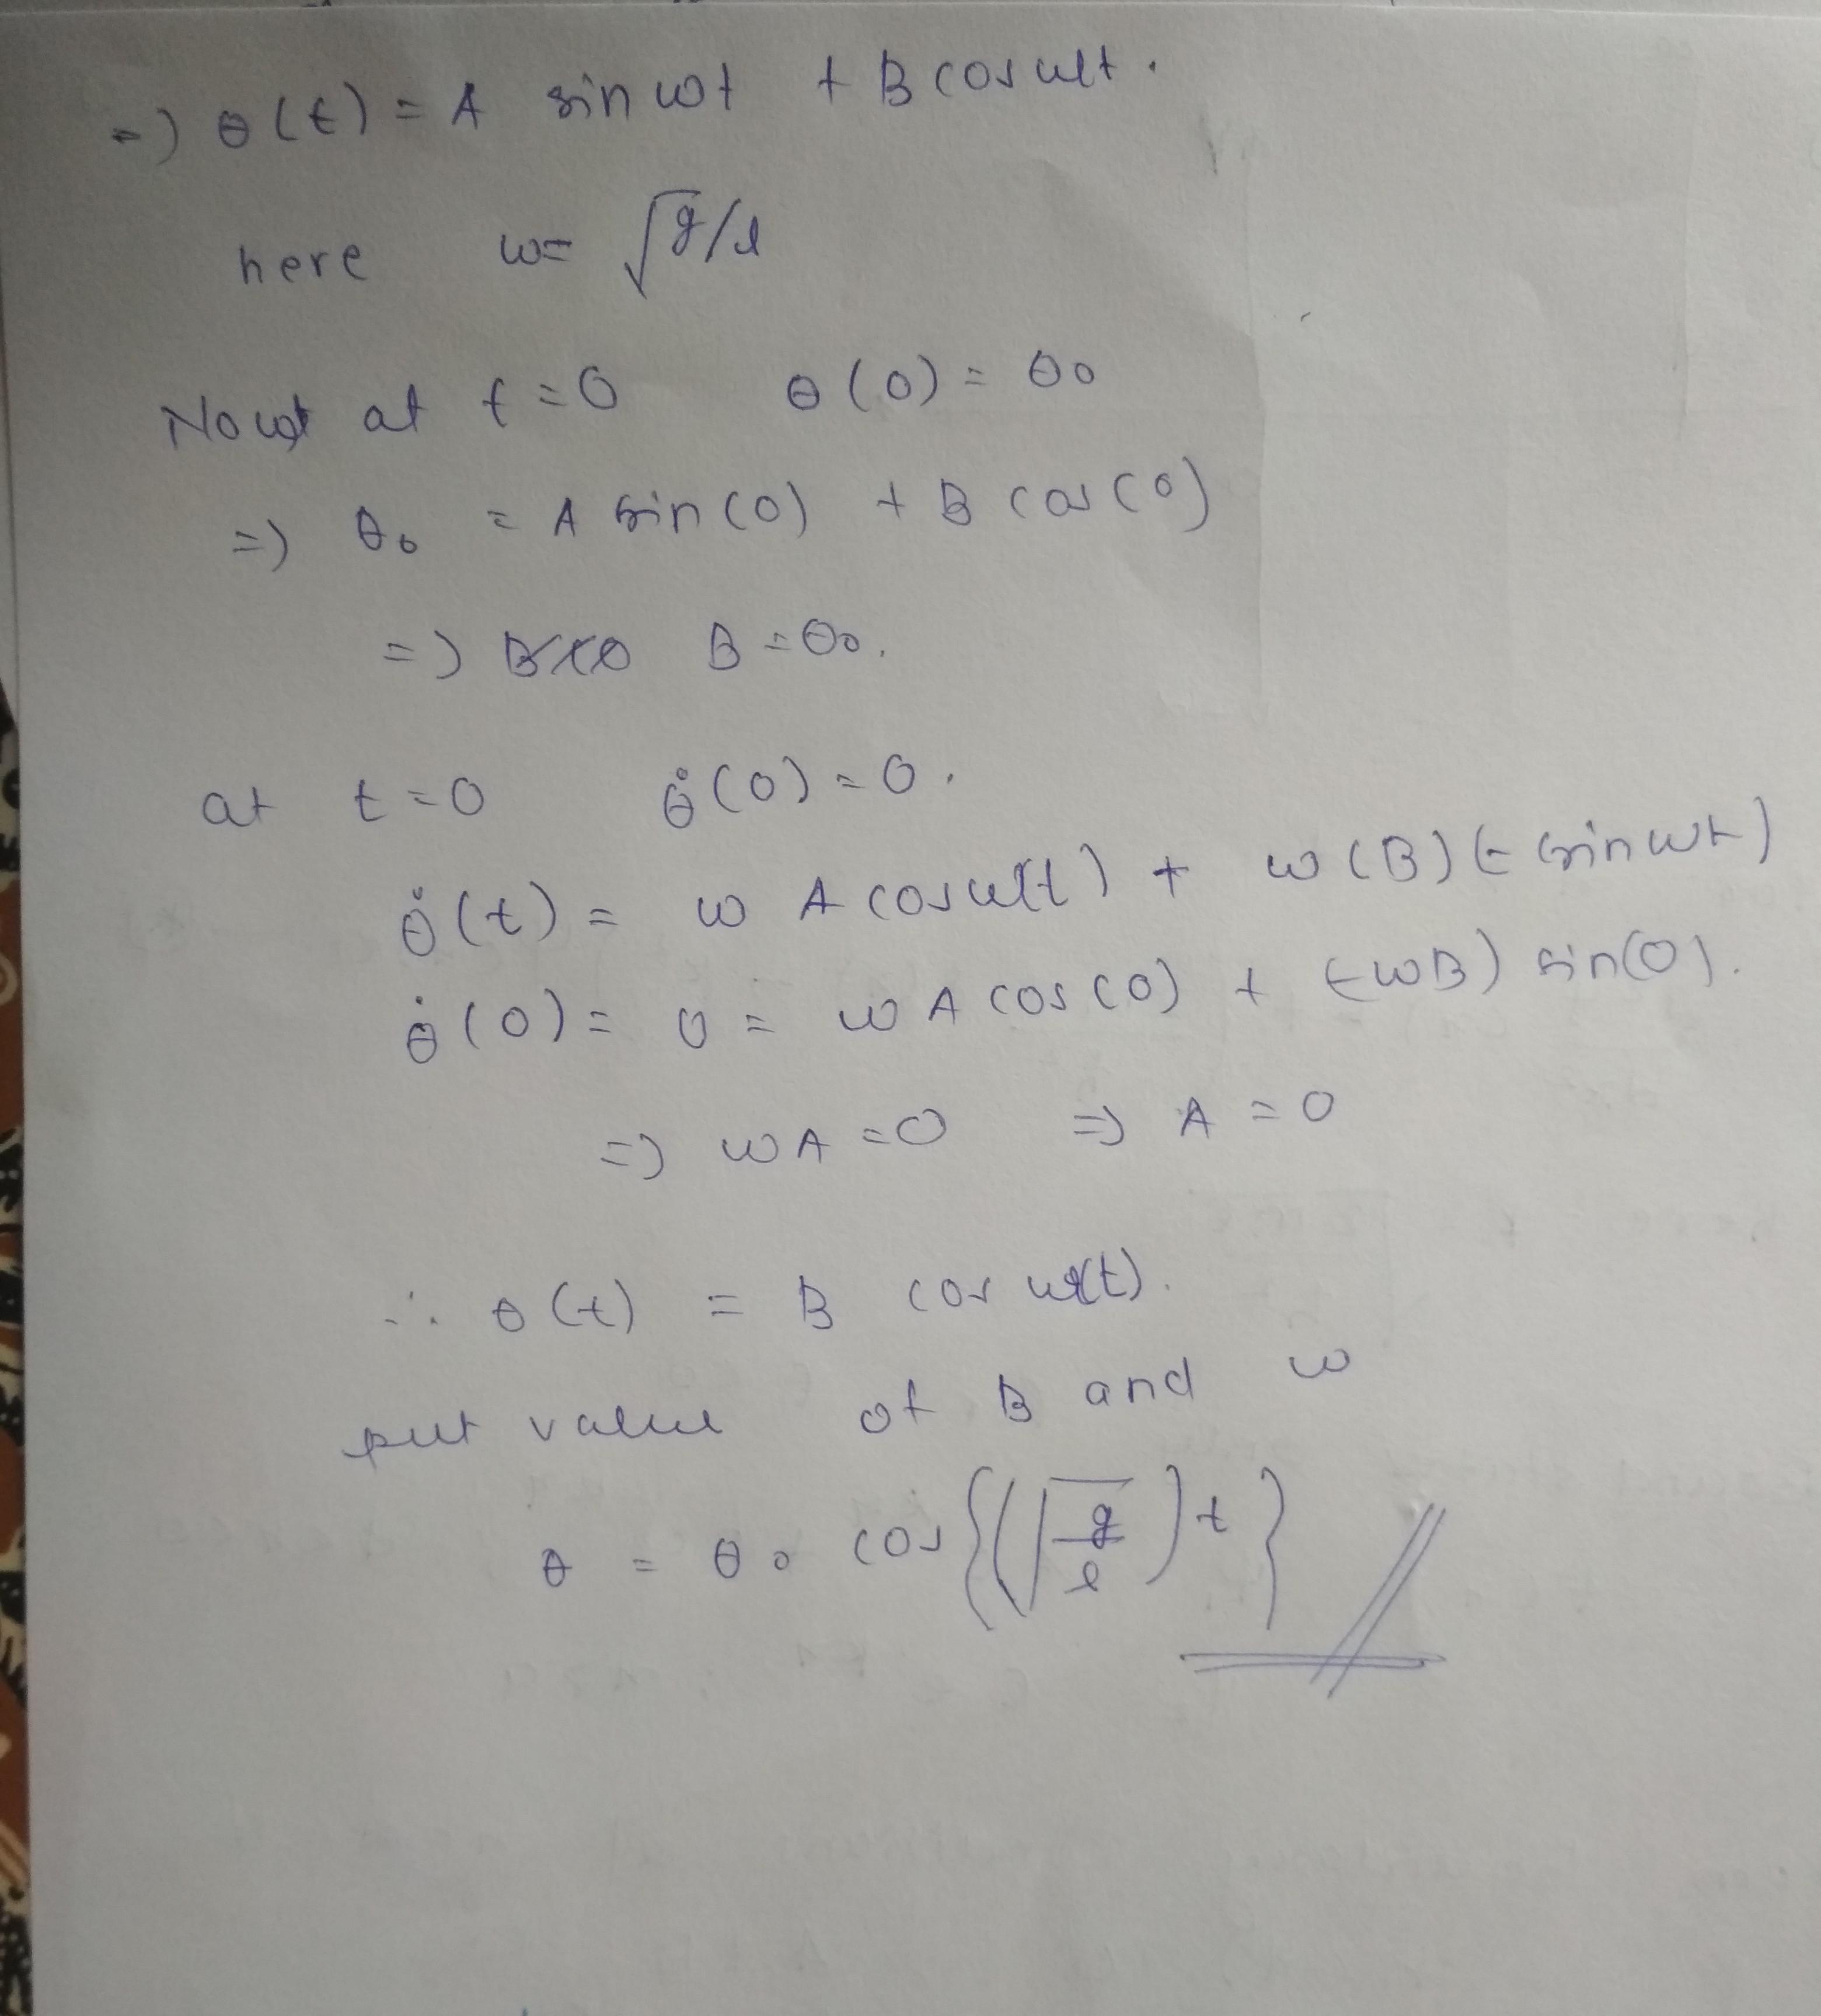 =) θ(t) = A sin ωt + B cos ωt.
here ω= √g/l
Now at t=0 θ(0) = θ0
=) θ0 = A sin(0) + B cos(0)
=) B = θ0.
at t=0 θ̇(0) = 0.
θ̇(t) = ω A cos ω(t) + ω(B)(-sin ωt)
θ̇(0) = 0 = ω A cos(0) + (-ωB) sin(0).
=) ωA = 0 =) A = 0
∴ θ(t) = B cos ω(t).
put value of B and ω
θ = θ0 cos{(√g/l)t}